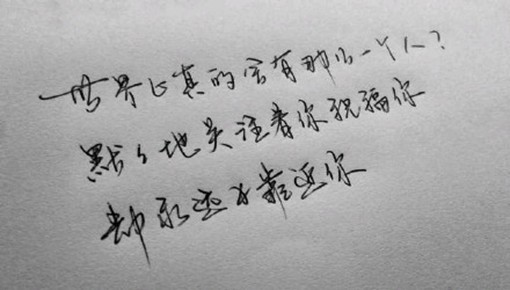 世界上真的会有那么一个人?
默々地关注着你祝福你
却永远不靠近你